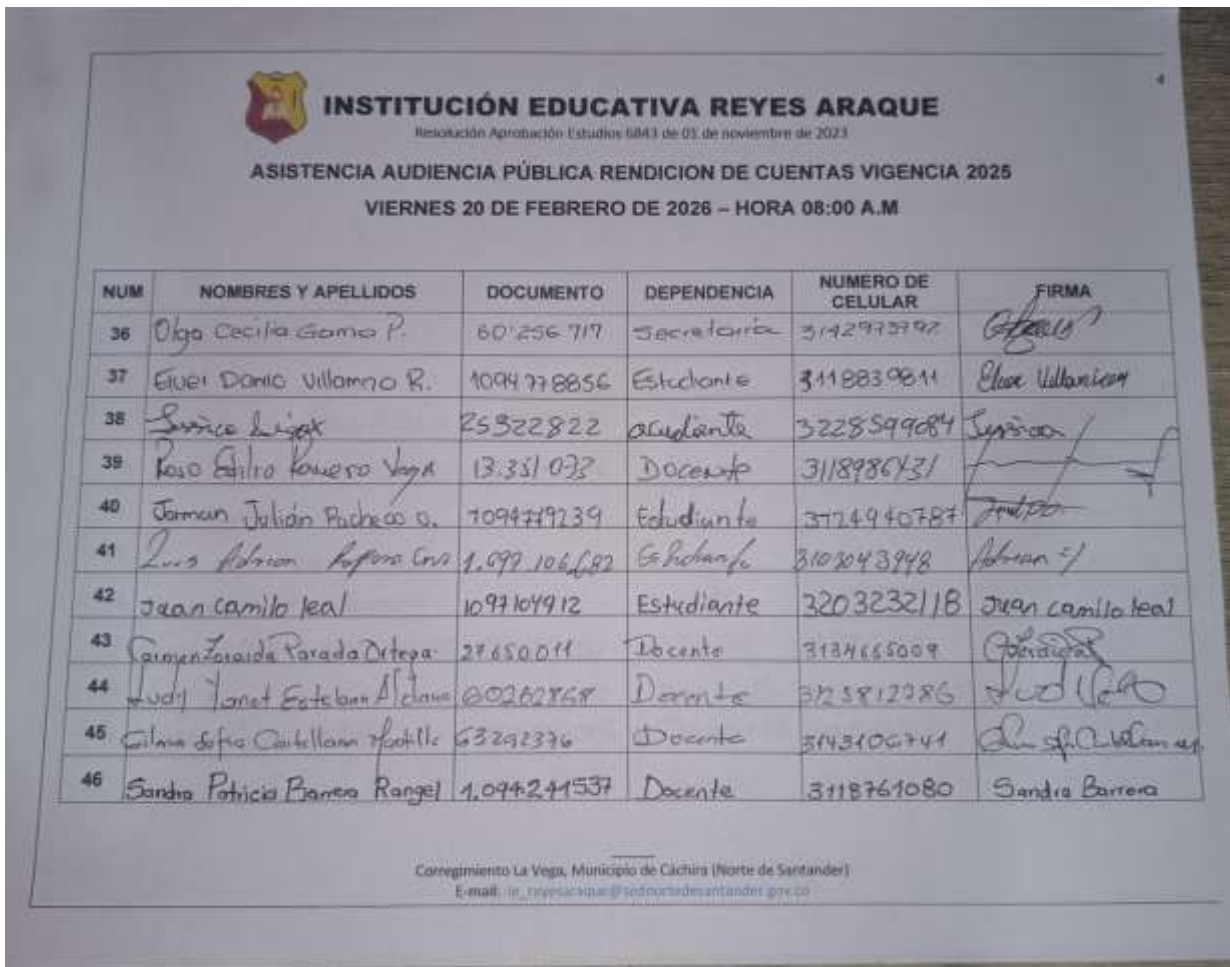 4
INSTITUCIÓN EDUCATIVA REYES ARAQUE
Resolución Aprobación Estudios 6843 de 01 de noviembre de 2023
ASISTENCIA AUDIENCIA PÚBLICA RENDICION DE CUENTAS VIGENCIA 2025
VIERNES 20 DE FEBRERO DE 2026 – HORA 08:00 A.M
NUM NOMBRES Y APELLIDOS DOCUMENTO DEPENDENCIA NUMERO DE CELULAR FIRMA
36 Olga Cecilia Gama P. 60'256 717 Secretaria 3142973792
37 R. 1094778856 Estudiante 3118839811
38 25322822 acudiente 3228599084
39 Romero Vega 13.351 073 Docente
40 Julián Pacheco 1094779239 Estudiante 3124940787
41 Luis Adrian 1.097.106.682 Estudiante 3103043948 Adrian
42 Juan camilo leal 1097104912 Estudiante 3203232118 Juan camilo leal
43 Carmen Zoraida Parada Ortega 27650011 Docente 3134665009
44 Yanet Esteban Aldana 60262868 Docente
45 Sofia Castellanos 63292376 Docente 3143106741
46 Sandra Patricia Barrera Rangel 1.094241537 Docente 3118761080 Sandra Barrera
Corregimiento La Vega, Municipio de Cáchira (Norte de Santander)
E-mail: ie_reyesaraque@sednortedesantander.gov.co